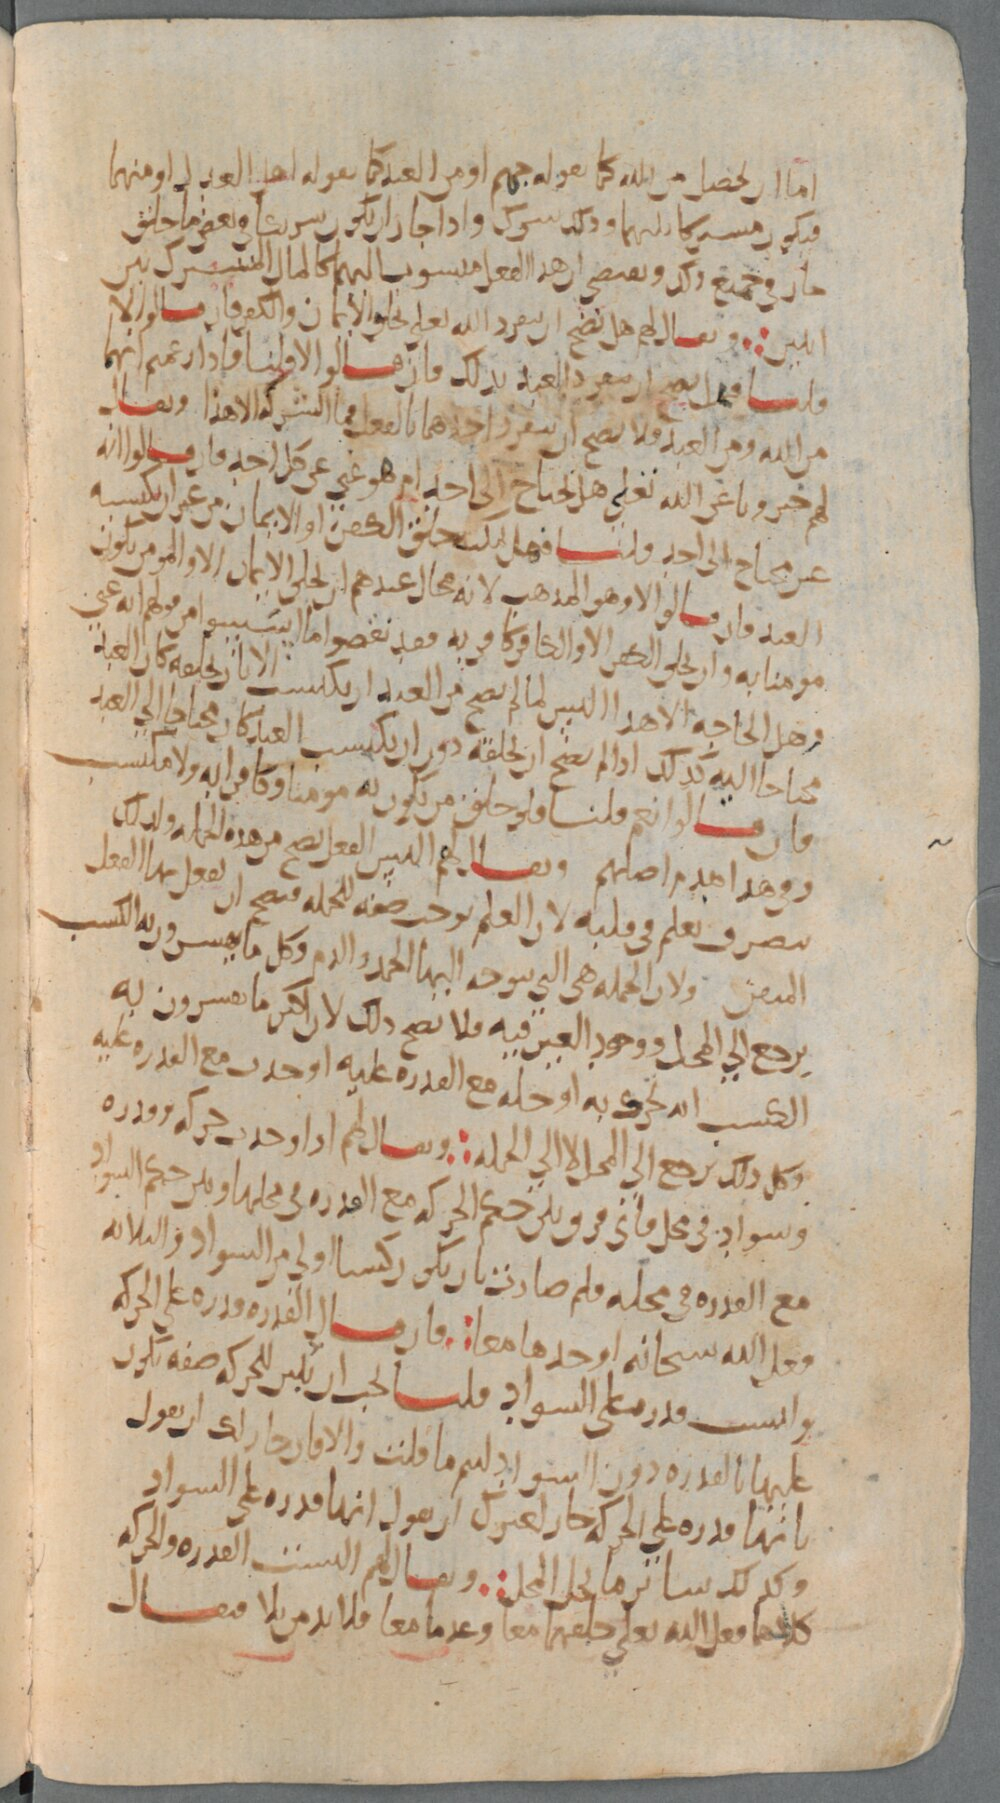 اما ان يحصل من الله كما يقوله جهم او من العبد كما يقوله اهل العدل او منهما
فيكون مشتركا بينهما وذلك شرك واذا جاز ان يكون شريكا في بعض ما خلق
جاز في جميع ذلك ويقتضي ان هذا الفعل منسوب اليهما كالمال المشترك بين
اثنين ويقال لهم هل يصح ان ينفرد الله تعلى بخلق الايمان والكفر فان قالوا لا
قلنا فهل يصح ان ينفرد العبد بذلك فان قالوا لا قلنا فاذا زعمتم انهما
من الله ومن العبد ولا يصح ان ينفرد احدهما بالفعل فما الشركة الا هذا ويقال
لهم خبرونا عن الله تعلى هل يحتاج الى احد ام هو غني عن كل احد فان قالوا انه
غير محتاج الى احد قلنا فهل يمكنه خلق الكفر او الايمان من غير ان يكتسبه
العبد فان قالوا لا وهو المذهب لانه محال عندهم ان يخلق الايمان الا والمومن يكون
مومنا به وان يخلق الكفر الا والكافر كافر به فقد نقضوا ما اسسوا من قولهم انه غني
وهل الحاجة الا هذا اليس لما لم يصح من العبد ان يكتسب الا بان يخلقه كان العبد
محتاجا اليه كذلك اذا لم يصح ان يخلقه دون ان يكتسب العبد كان محتاجا الى العبد
فان قالوا نعم قلنا فلو خلق من يكون به مومنا وكافرا به ولا مكتسب
وفي هذا هدم اصلهم ويقال لهم اليس الفعل يصح من هذه الجملة ولذلك
يتصرف بعلم في قلبه لان العلم يوجب صفة للجملة فيصح ان يفعل بها الفعل
المتقن ولان الجملة هي التي يتوجه اليها الحمد والذم وكل ما يفسرون به الكسب
يرجع الى المحل ووجود الغير فيه ولا يصح ذلك لان اكثر ما يفسرون به
الكسب انه تحرك به او حله مع القدرة عليه او حدث مع القدرة عليه
وكل ذلك يرجع الى المحل لا الى الجملة ويقال لهم اذا وجدت حركة وقدرة
وسواد في محل فاي فرق بين حكم الحركة مع القدرة في محلها وبين حكم السواد
مع القدرة في محله فلم صارت بان يكون كسبا اولى من السواد والثلاثة
فعل الله سبحانه اوجدها معا فان قال القدرة قدرة على الحركة
وليست قدرة على السواد قلنا يجب ان يكون للحركة صفة تكون
عليها بالقدرة دون السواد ليتم ما قلت والا فان جاز لك ان تقول
بانها قدرة على الحركة جاز لغيرك ان يقول انها قدرة على السواد
وكذلك سائر ما يحل المحل ويقال لهم اليست القدرة والحركة
كلاهما فعل الله تعلى خلقهما معا وعدما معا فلا بد من بلا فيقال